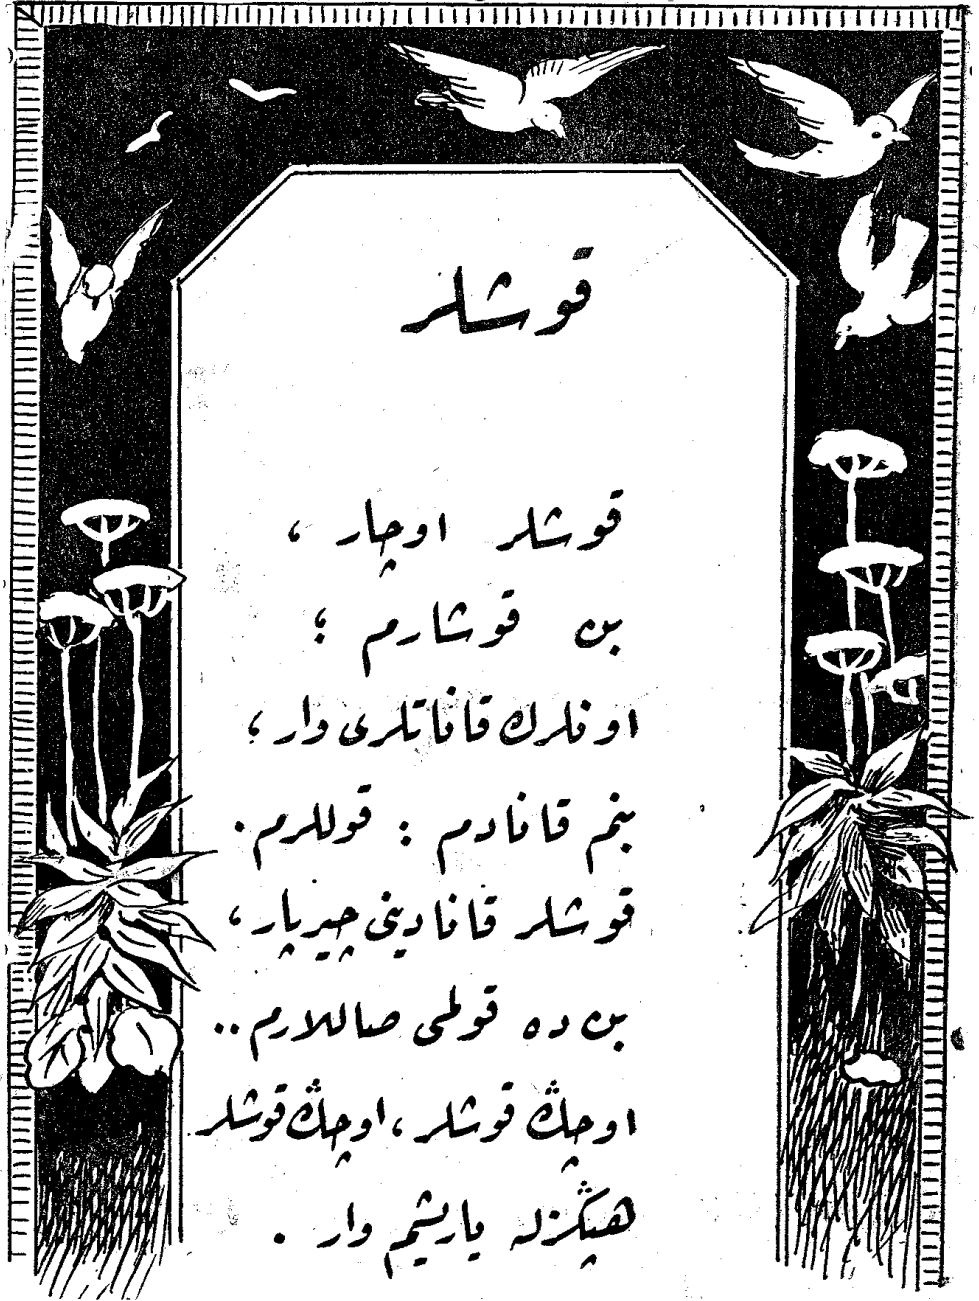 قوشلر
قوشلر اوچار ،
بن قوشارم ؛
اونلرك قاناتلرى وار ؛
بنم قانادم : قوللرم .
قوشلر قانادينى چيرپار ،
بن ده قولمى صاللارم ..
اوچڭ قوشلر ، اوچڭ قوشلر
هپڭزله ياريشم وار .